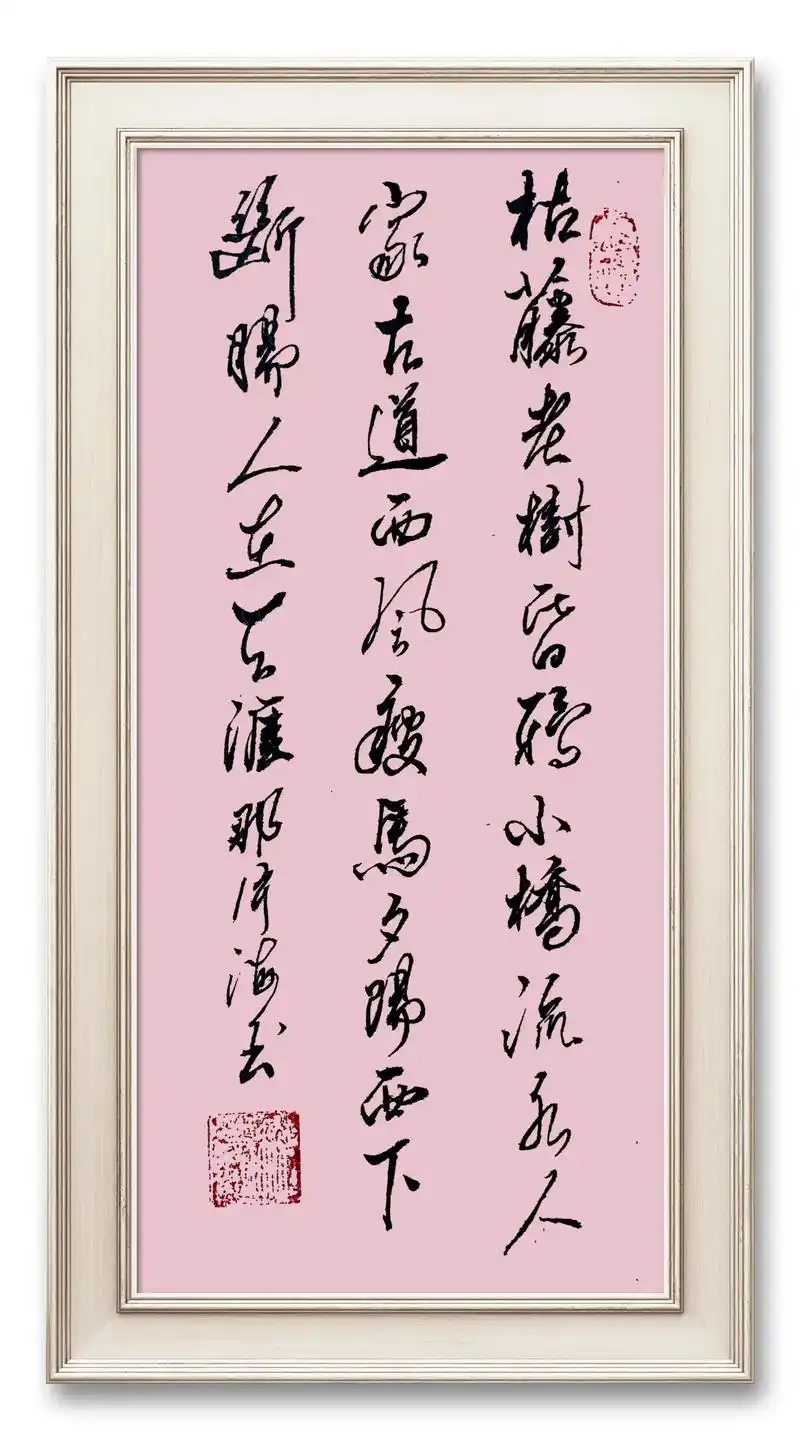 枯藤老樹昏鴉小橋流水人
家古道西風瘦馬夕陽西下
斷腸人在天涯